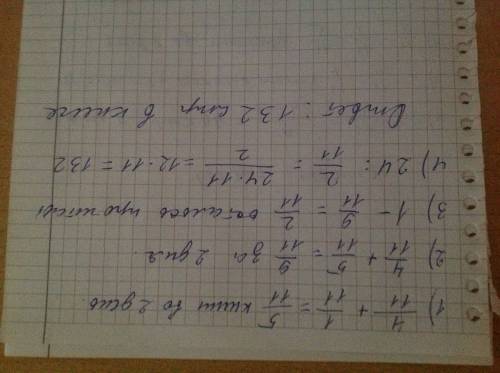 1) 4/11 + 1/11 = 5/11 книги во 2 день.
2) 4/11 + 5/11 = 9/11 за 2 дня.
3) 1 - 9/11 = 2/11 осталось прочитать
4) 24 : 2/11 = 24·11/2 = 12·11 = 132
Ответ: 132 стр в книге